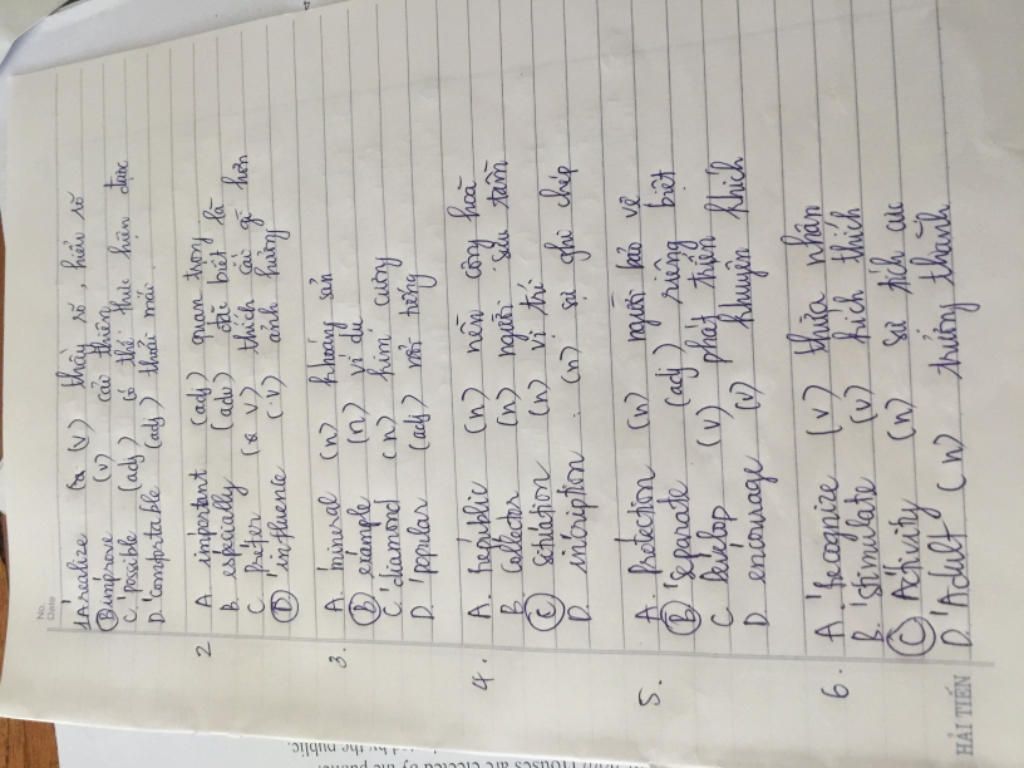 No.
Date
1A'realize (v) thay số, hiển số
B improve (v) cải thiện
C 'posible (adj) có thể thực hiện được
D 'comportable (adj) thoải mái.
2 A important (adj) quan trọng
B. especially (adv) đặc biệt là
C prefer (v) thích cái gì hơn
D 'influence (v) ảnh hưởng
3. A 'mineral (n) khoáng sản
B example (n) ví dụ
C 'diamond (n) kim cương
D. 'popular (adj) nổi tiếng
4. A. republic (n) nền công hoà
B collector (n) người sưu tầm
C (n) vị trí
D. incription (n) sự ghi chép
5. A. protection (n) người bảo vệ
B 'seperate (adj) riêng biệt
C develop (v) phát triển
D encourage (v) khuyến khích
6. A. 'recognize (v) thừa nhận
B. 'stimulate (v) kích thích
C Activity (n) sự tích cực
D 'Adult (n) trưởng thành
HẢI TIẾN
Houses are elected by the public.
by the public.